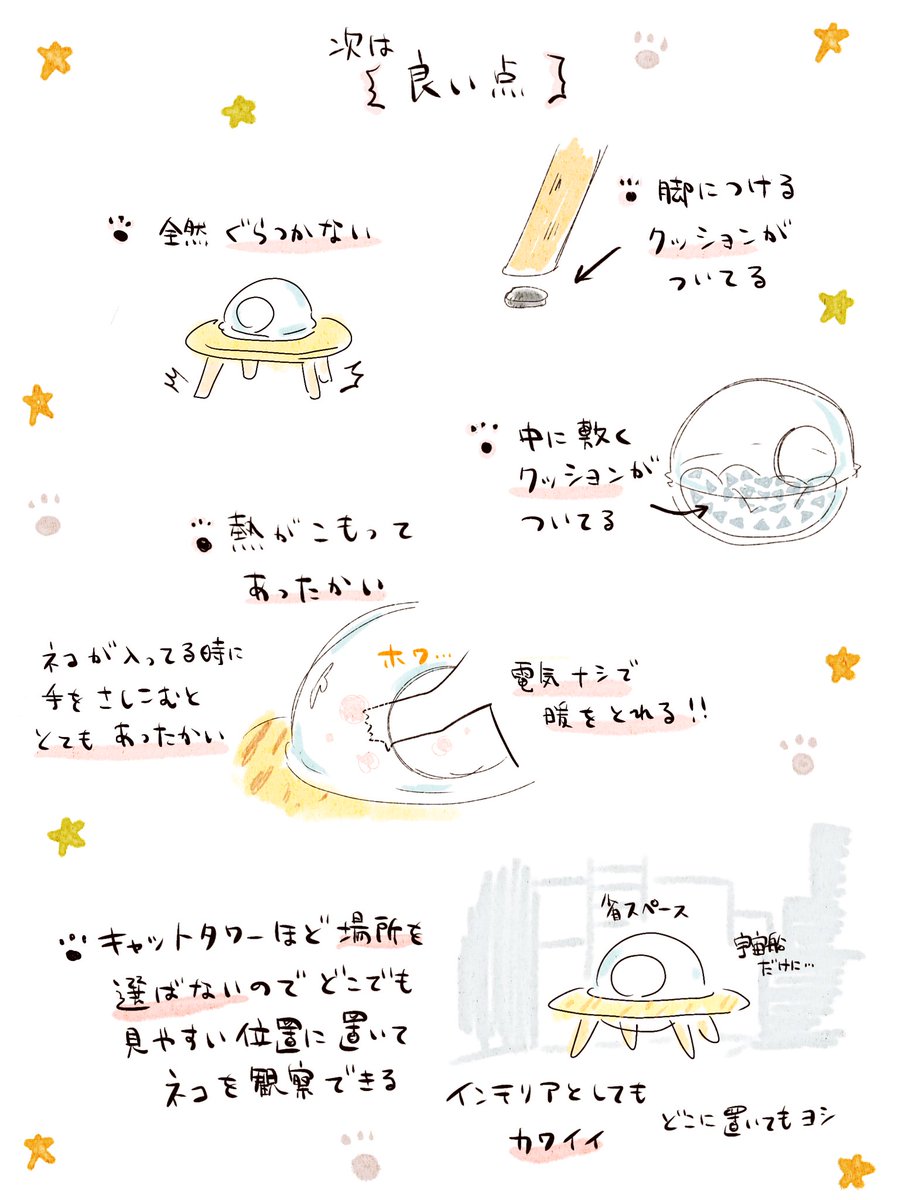 次は
{良い点}
全然 ぐらつかない
脚につける
クッションが
ついてる
中に敷く
クッションが
ついてる
熱がこもって
あったかい
ネコが入ってる時に
手をさしこむと
とてもあったかい
ホワ…
電気ナシで
暖をとれる!!
キャットタワーほど場所を
選ばないのでどこでも
見やすい位置に置いて
ネコを観察できる
省スペース
宇宙船
だけに…
インテリアとしても
カワイイ
どこに置いてもヨシ